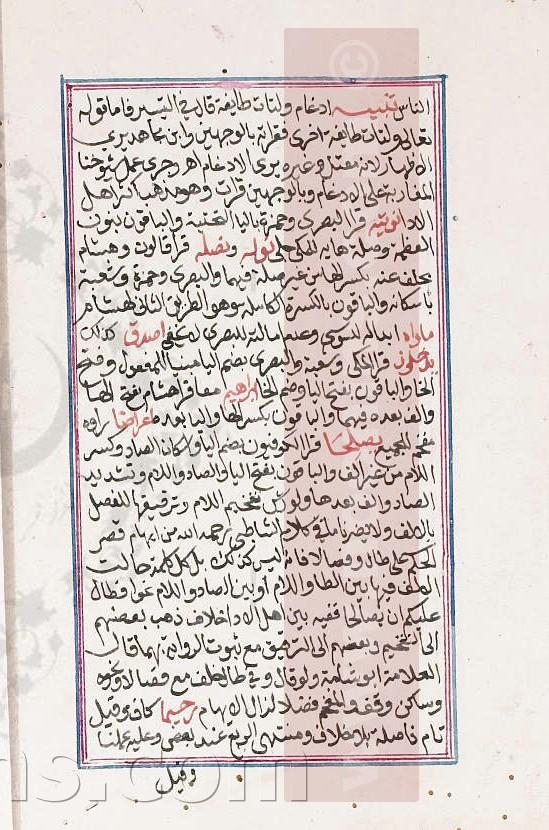 الناس تنبيه ادغام ولتات طايفة قال في التيسير فاما قوله
تعالى ولتات طايفة اخرى فقراته بالوجهين وابن مجاهد يرى
الاظهار لانه معتل وغيره يرى الادغام اهـ وجرى عمل شيوخنا
المغاربة على الادغام وبالوجهين قرات وهو مذهب اكثر اهل
الادا نوتيه قرا البصري وحمزة باليا التحتية والباقون بنون
العظمة وصلة هايه للمكي جلي نوله ونصله قرا قالون وهشام
بخلف عنه بكسر الهاء من غير صلة فيهما والبصري وحمزة وشعبة
باسكانه والباقون بالكسرة الكاملة وهو الطريق الثاني لهشام
ماواه ابداله لسوسي وعدم امالته للبصري لا يخفى اصدق كذلك
يدخلون قرا المكي وشعبة والبصري بضم اليا مبنيا للمفعول وفتح
الخا والباقون بفتح اليا وضم الخا ابراهيم معا قرا هشام بفتح الها
والف بعده فيهما والباقون بكسر الها واليا بعده اعراضا راوه
مفخم للجميع يصلحا قرا الكوفيون بضم اليا واسكان الصاد وكسر
اللام من غير الف والباقون بفتح اليا والصاد واللام وتشديد
الصاد والف بعدها ولورش تفخيم اللام وترقيقها للفصل
بالالف ولا يضرنا ما في كلام الشاطبي رحمه الله من ايهام قصر
الحكم على طال وفصالا فانه ليس كذلك بل كل كلمة حالت
الالف فيها بين الطا واللام او بين الصاد واللام نحو افطال
عليكم ان يصالحا ففيه بين اهل الادا خلاف ذهب بعضهم
الى التفخيم وبعضهم الى الترقيق مع ثبوت الرواية بهما قال
العلامة ابو شامة ولو قال وفي طال خلف مع فصالا ونحوه
وساكن وقف والمفخم فضلا لزال الايهام رحيما كاف وقيل
تام فاصلة بلا خلاف ومنتهى الربع عند بعض وعليه عملنا
وقيل